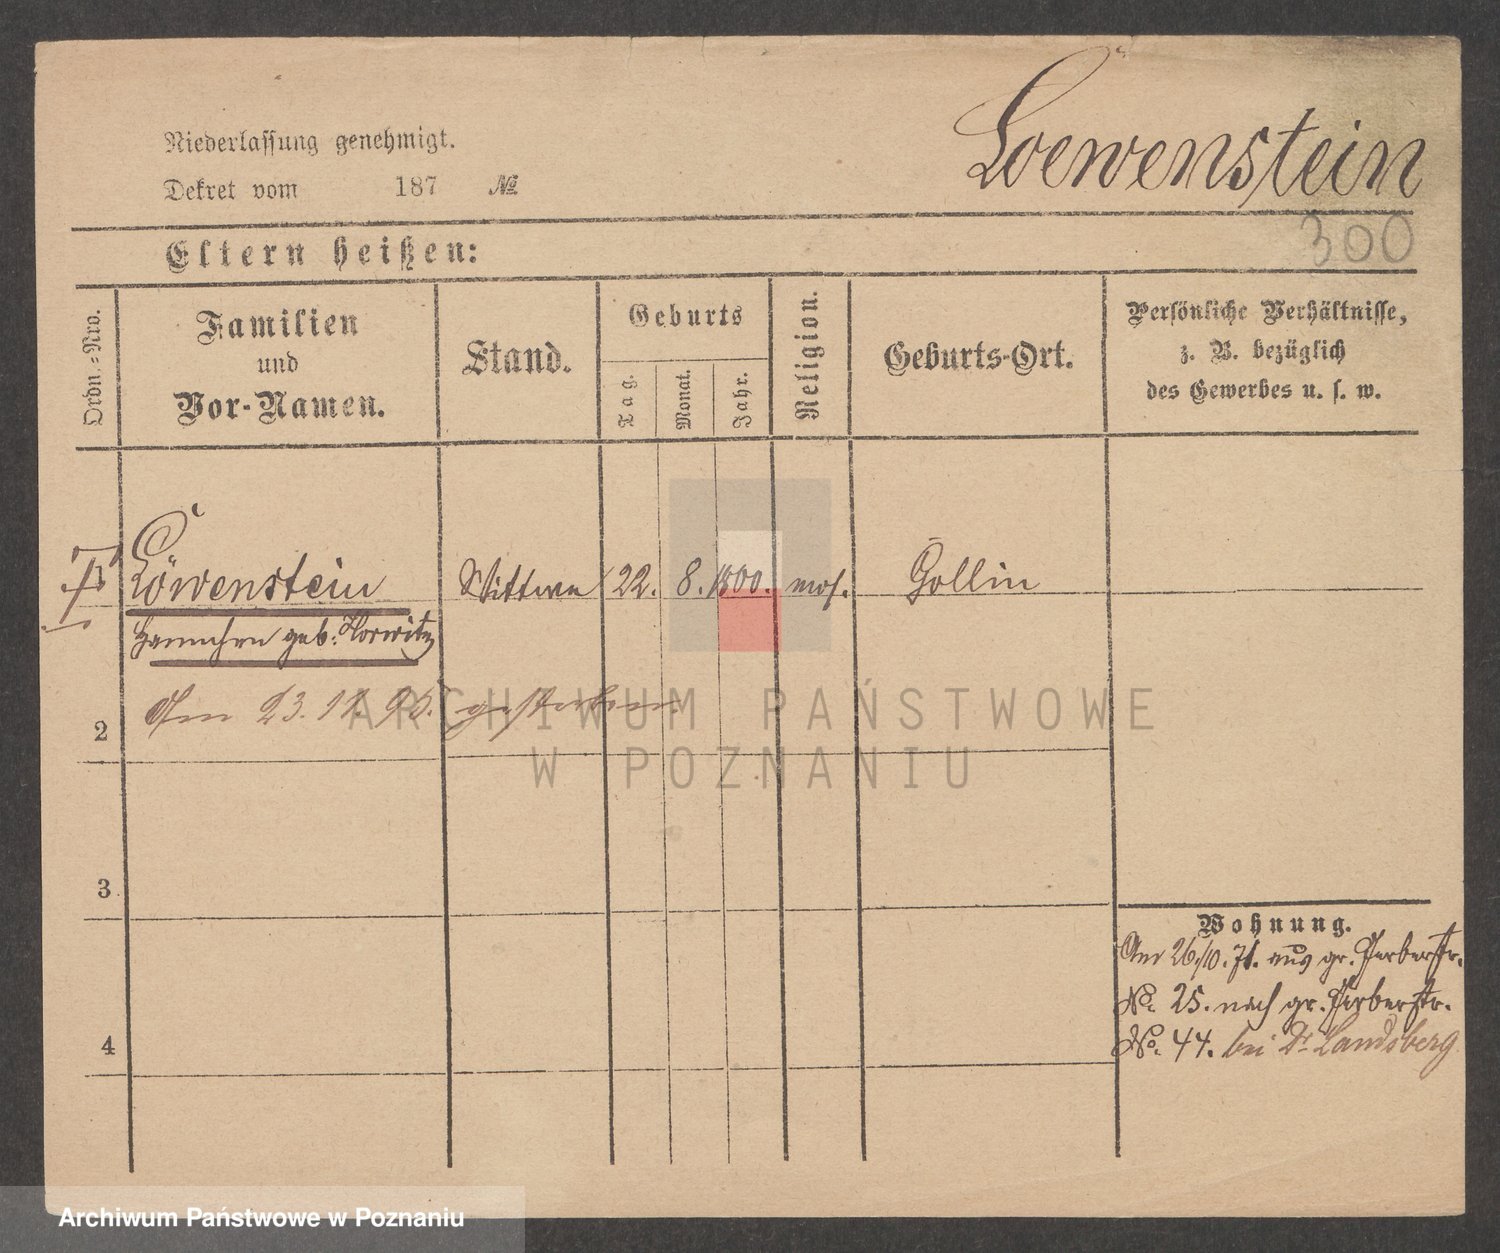 Loewenstein
Niederlassung genehmigt.
Dekret vom 187 №
300
Eltern heißen:
Ordn.-Nro.
Familien
und
Vor-Namen.
Stand.
Geburts
Tag.
Monat.
Jahr.
Religion.
Geburts-Ort.
Persönliche Verhältnisse,
z. B. bezüglich
des Gewerbes u. s. w.
Löwenstein Wittwe 22. 8. 1800. mos. Gollin
geb. Horwitz
Am 23. 11. gestorben
2
3
4
Wohnung.
Am 26/10. 71. aus gr. Gerberstr.
No. 25. nach gr. Gerberstr.
No. 44. bei Dr Landsberg
ARCHIWUM PAŃSTWOWE
W POZNANIU
Archiwum Państwowe w Poznaniu